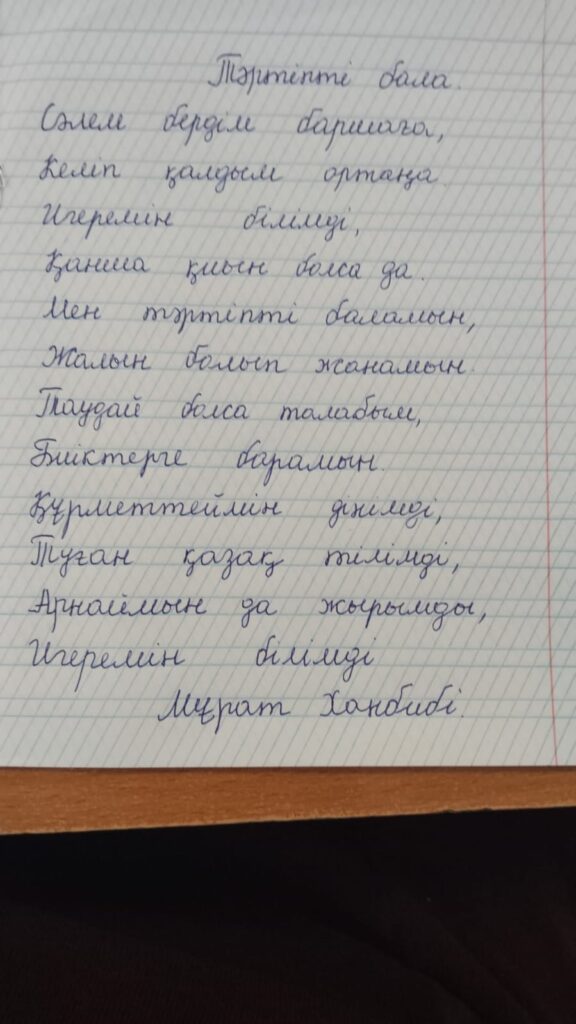 Тәртіпті бала.
Сәлем бердім баршаға,
Келіп қалдым ортаңа
Игеремін білімді,
Қанша қиын болса да.
Мен тәртіпті баламын,
Жалын болып жанамын.
Таудай болса талабым,
Биіктерге барамын.
Құрметтеймін дінімді,
Туған қазақ тілімді,
Арнаймын да жырымды,
Игеремін білімді
Мұрат Ханбибі.